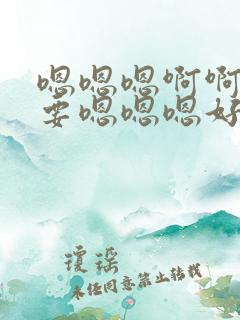 嗯嗯嗯啊啊
要嗯嗯嗯好
琼瑶
未经同意禁止转载